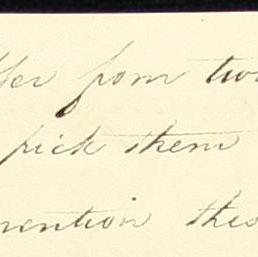 ffer from two
pick them
mention this